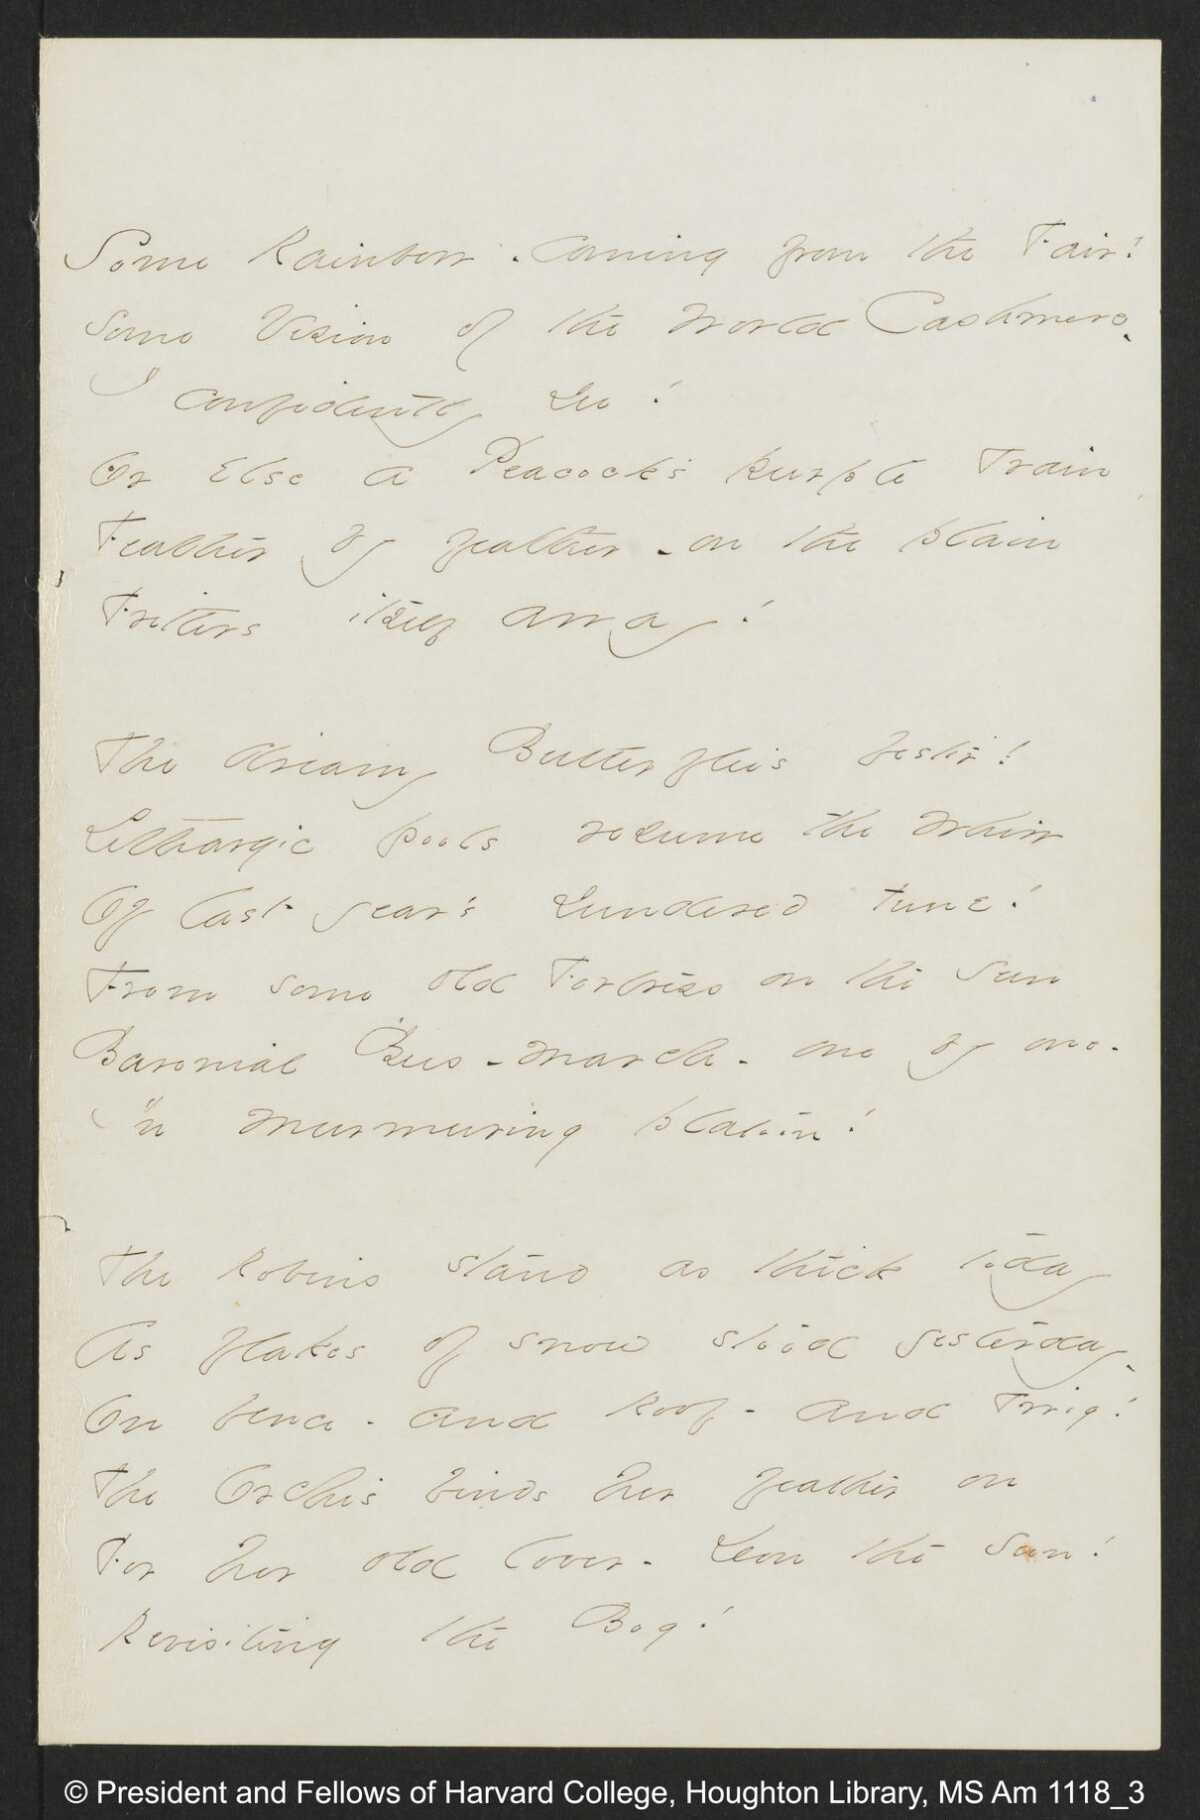 Some Rainbow - coming from the Fair!
Some Vision of the World Cashmere -
I confidently see!
Or else a Peacock's purple Train
Feather by feather - on the plain
Fritters itself away!
The dreamy Butterflies bestir!
Lethargic pools resume the whirr
Of last year's sundered tune!
From some old Fortress on the sun
Baronial Bees - march - one by one -
In murmuring platoon!
The Robins stand as thick today
As flakes of snow stood yesterday -
On fence - and Roof - and Twig!
The Orchis binds her feather on
For her old lover - Don the Sun!
Revisiting the Bog!
© President and Fellows of Harvard College, Houghton Library, MS Am 1118_3